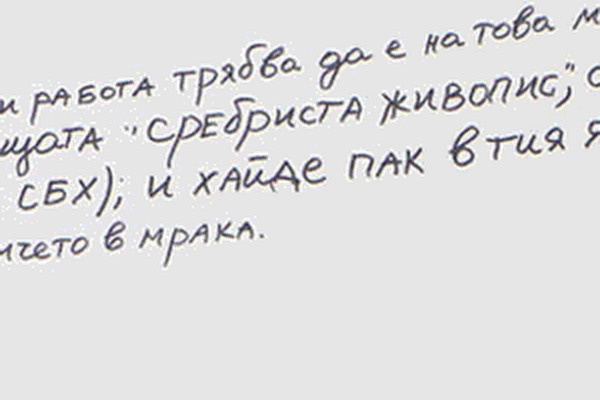 и работа трябва да е на това
"сребриста живопис",
СБХ), и хайде пак в тия
в мрака.